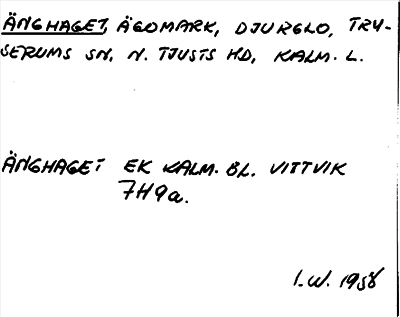 ÄNGHAGET, ÄGOMARK, DJURGLO, TRY-
SERUMS SN, N. TJUSTS HD, KALM. L.
ÄNGHAGET EK KALM. BL. VITTVIK
7H9a.
I.W. 1958